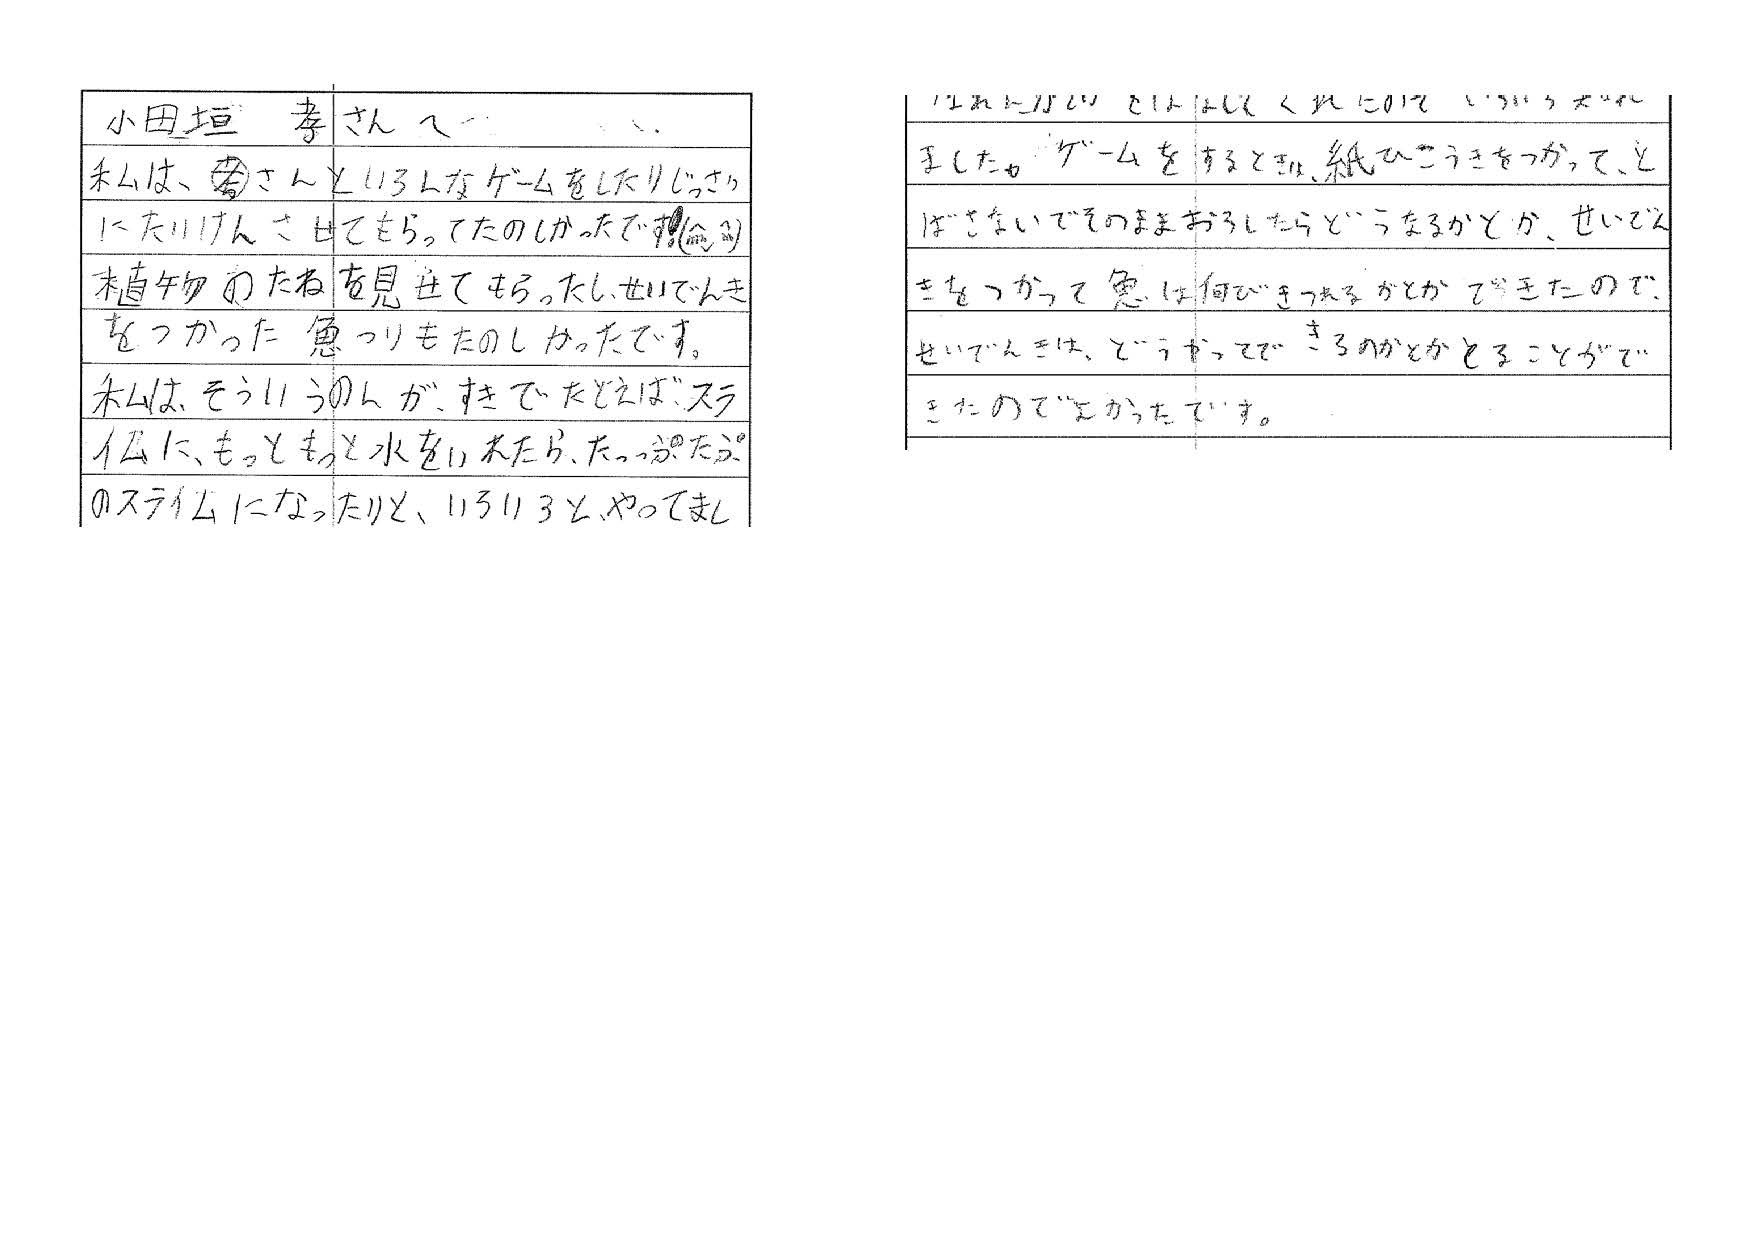 小田垣 孝さんへ
私は、孝さんといろんなゲームをしたりじっさい
にたいけんさせてもらってたのしかったです!
植物のたねを見せてもらったし、せいでんき
をつかった魚つりもたのしかったです。
私は、そういうのんが、すきでたとえば、スラ
イムに、もっともっと水をいれたら、たっっぷたぷ
のスライムになったりと、いろいろと、やってまし
ました。ゲームをするときは、紙ひこうきをつかって、と
ばさないでそのままおろしたらどうなるかとか、せいでん
きをつかって魚は何びきつれるかとかできたので、
せいでんきは、どうやってできるのかとかとることがで
きたのでよかったです。